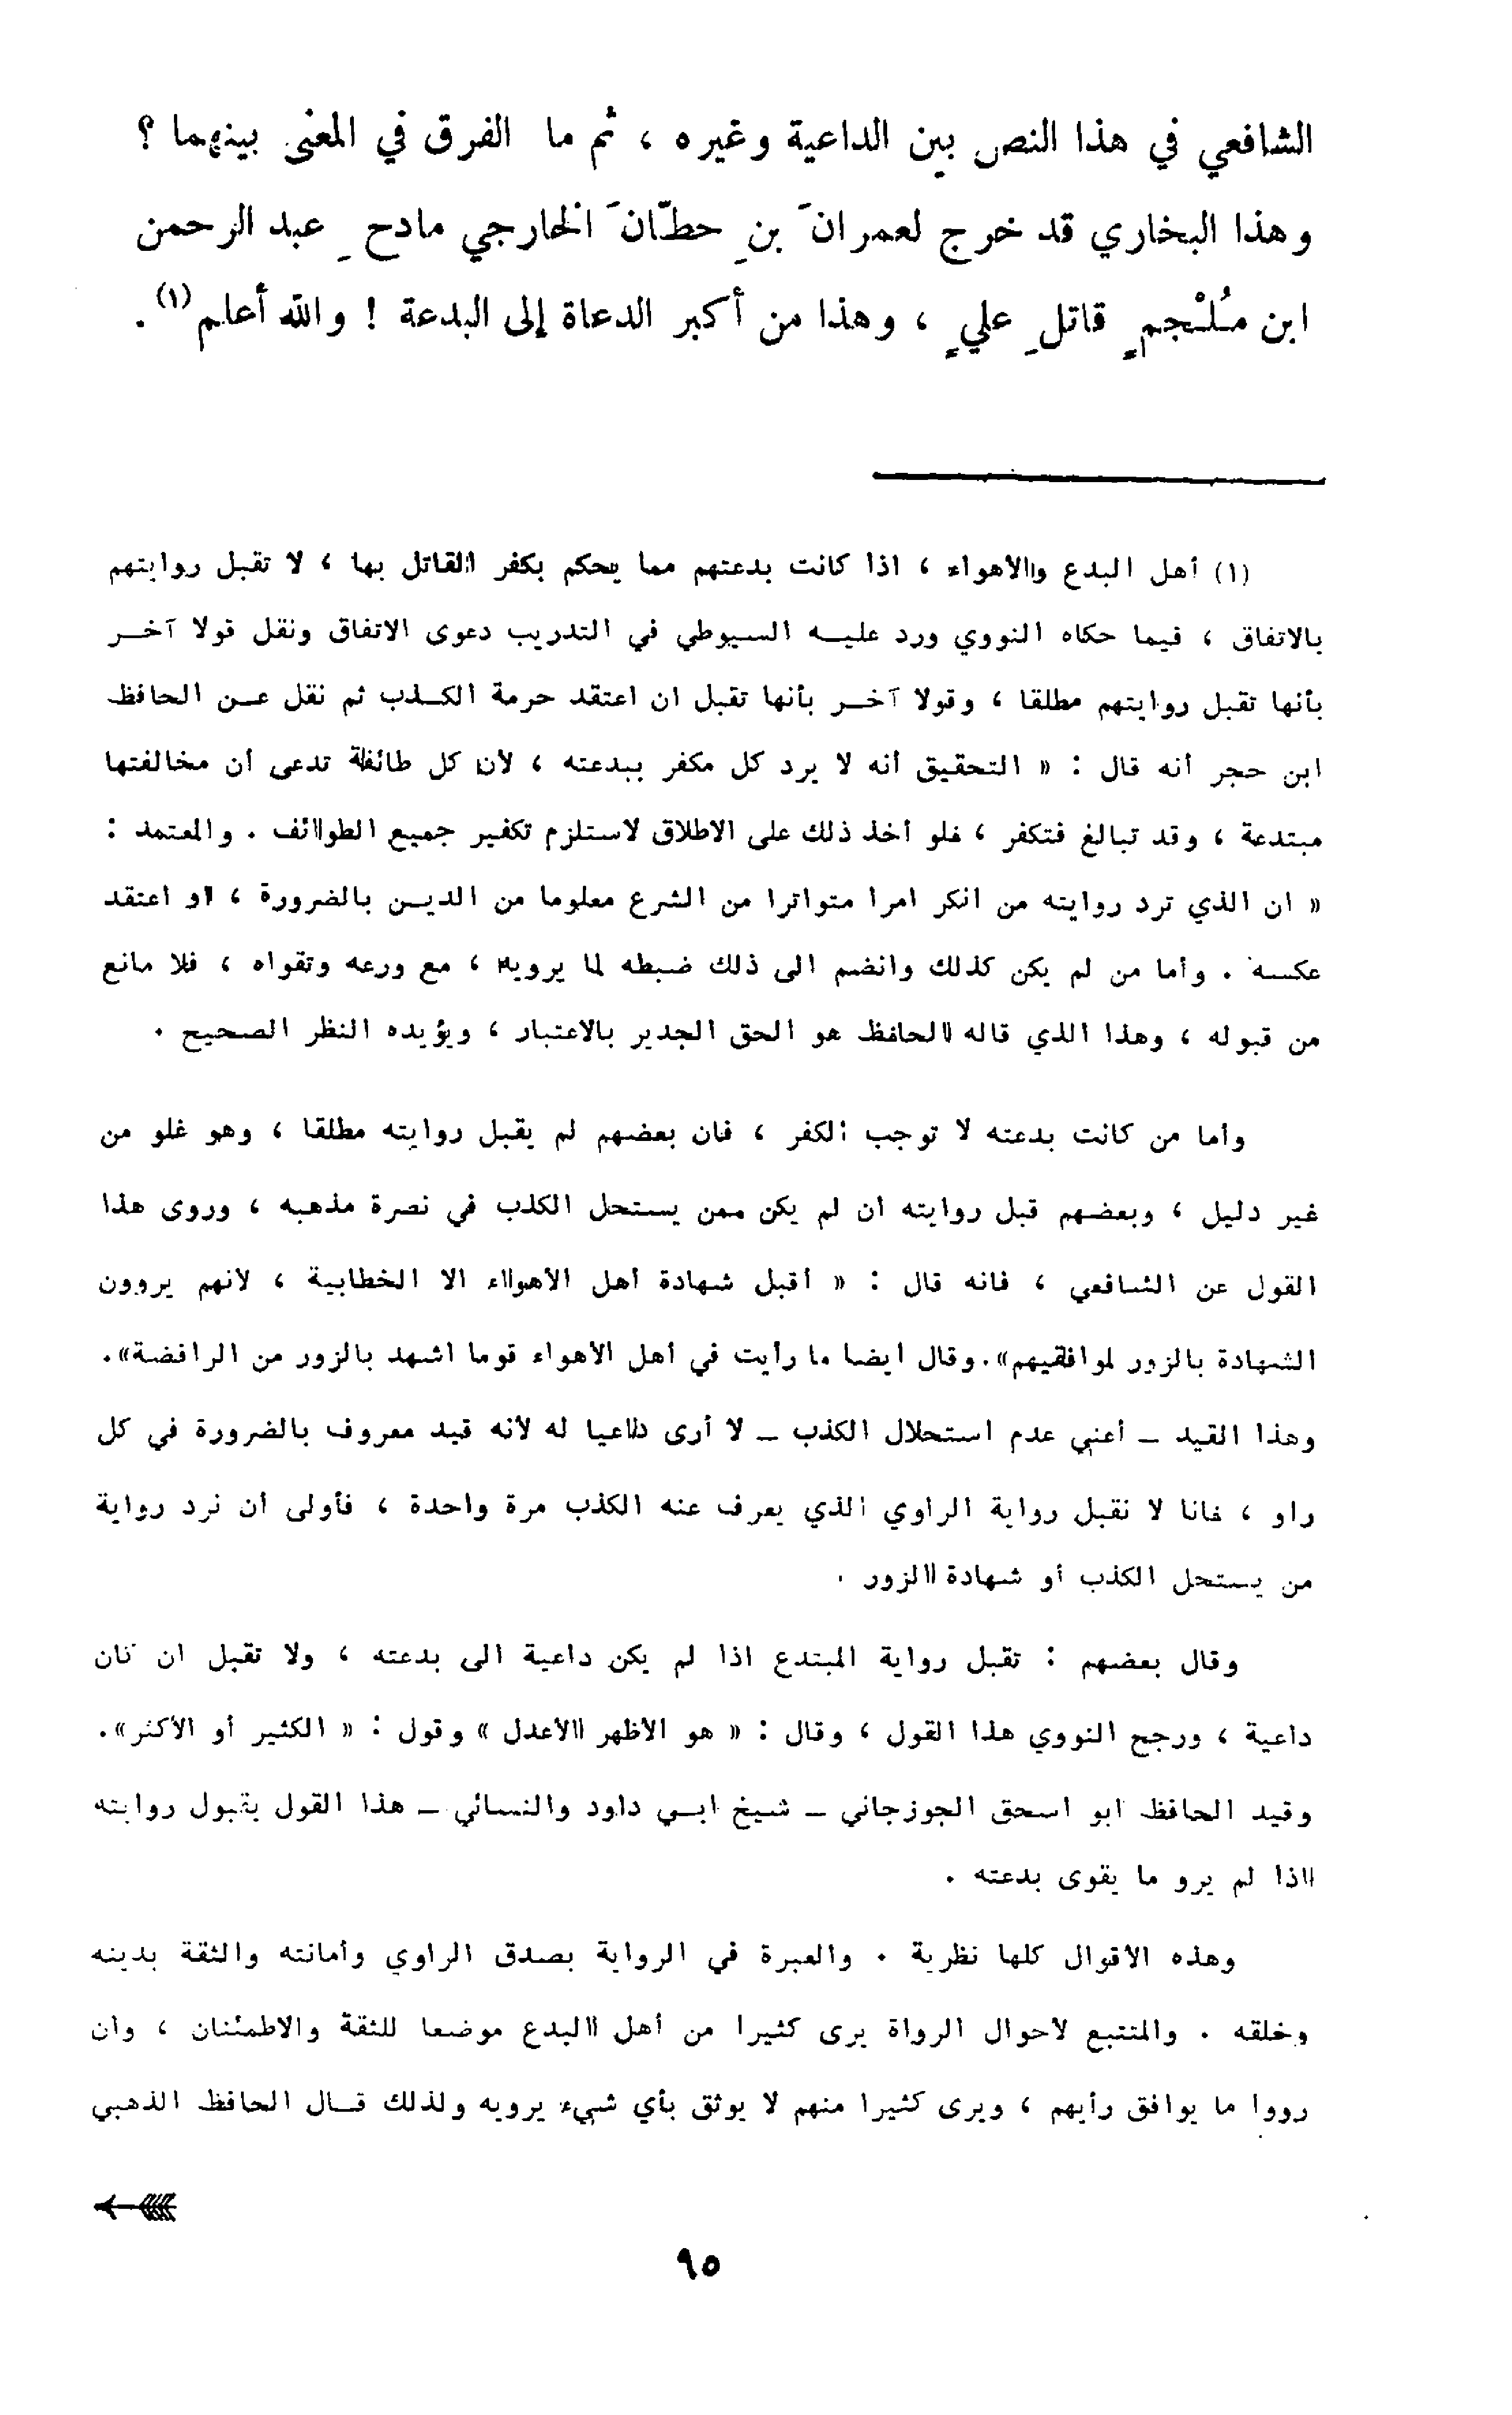 الشافعي في هذا النص بين الداعية وغيره ، ثم ما الفرق في المعنى بينهما ؟
وهذا البخاري قد خرج لعمرانَ بنِ حطّانَ الخارجي مادحِ عبد الرحمن
ابن مُلْجمٍ قاتلِ عليٍ ، وهذا من أكبر الدعاة إلى البدعة ! والله أعلم (١) .
(١) أهل البدع والاهواء ، اذا كانت بدعتهم مما يحكم بكفر القائل بها ، لا تقبل روايتهم
بالاتفاق ، فيما حكاه النووي ورد عليه السيوطي في التدريب دعوى الاتفاق ونقل قولا آخر
بأنها تقبل روايتهم مطلقا ، وقولا آخر بأنها تقبل ان اعتقد حرمة الكذب ثم نقل عن الحافظ
ابن حجر أنه قال : « التحقيق أنه لا يرد كل مكفر ببدعته ، لان كل طائفة تدعى أن مخالفتها
مبتدعة ، وقد تبالغ فتكفر ، فلو أخذ ذلك على الاطلاق لاستلزم تكفير جميع الطوائف . والمعتمد :
« ان الذي ترد روايته من انكر امرا متواترا من الشرع معلوما من الدين بالضرورة ، او اعتقد
عكسه . وأما من لم يكن كذلك وانضم الى ذلك ضبطه لما يرويه ، مع ورعه وتقواه ، فلا مانع
من قبوله ، وهذا الذي قاله الحافظ هو الحق الجدير بالاعتبار ، ويؤيده النظر الصحيح .
وأما من كانت بدعته لا توجب الكفر ، فان بعضهم لم يقبل روايته مطلقا ، وهو غلو من
غير دليل ، وبعضهم قبل روايته ان لم يكن ممن يستحل الكذب في نصرة مذهبه ، وروى هذا
القول عن الشافعي ، فانه قال : « أقبل شهادة أهل الأهواء الا الخطابية ، لانهم يروون
الشهادة بالزور لموافقيهم» . وقال ايضا ما رأيت في أهل الأهواء قوما اشهد بالزور من الرافضة» .
وهذا القيد – أعني عدم استحلال الكذب – لا أرى داعيا له لأنه قيد معروف بالضرورة في كل
راو ، فانا لا نقبل رواية الراوي الذي يعرف عنه الكذب مرة واحدة ، فأولى أن نرد رواية
من يستحل الكذب أو شهادة الزور .
وقال بعضهم : تقبل رواية المبتدع اذا لم يكن داعية الى بدعته ، ولا تقبل ان كان
داعية ، ورجح النووي هذا القول ، وقال : « هو الاظهر الأعدل » وقول : « الكثير أو الأكثر» .
وقيد الحافظ ابو اسحق الجوزجاني – شيخ ابي داود والنسائي – هذا القول بقبول روايته
اذا لم يرو ما يقوى بدعته .
وهذه الاقوال كلها نظرية . والعبرة في الرواية بصدق الراوي وأمانته والثقة بدينه
وخلقه . والمتتبع لاحوال الرواة يرى كثيرا من أهل البدع موضعا للثقة والاطمئنان ، وان
رووا ما يوافق رأيهم ، ويرى كثيرا منهم لا يوثق بأي شيء يرويه ولذلك قال الحافظ الذهبي
٩٥